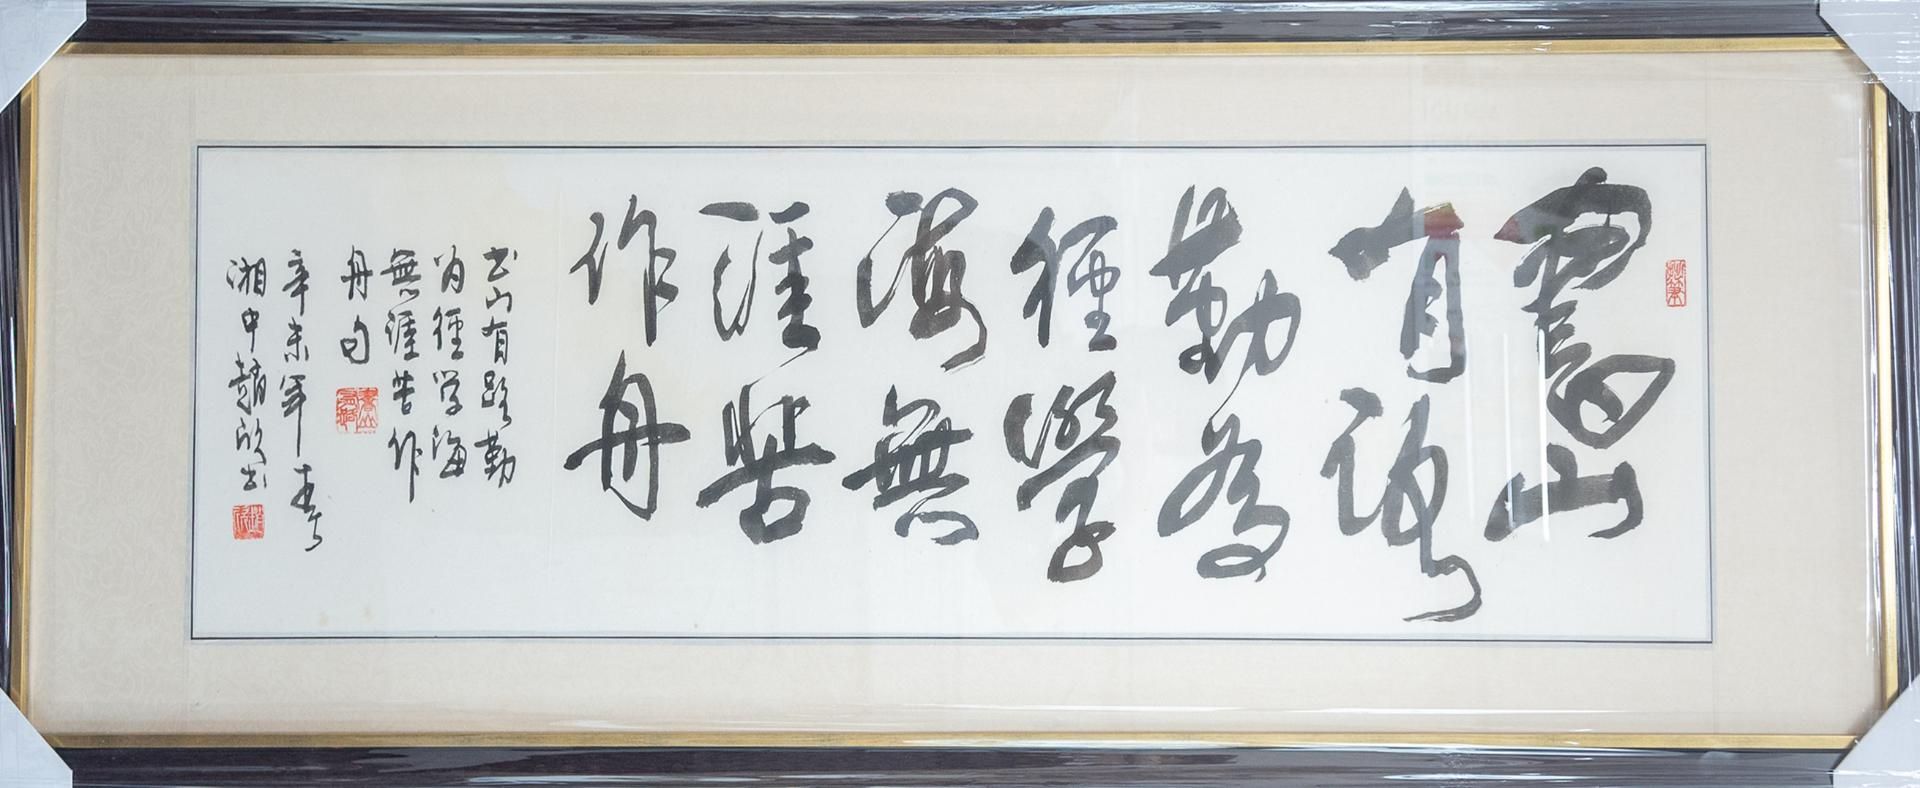 書山
有路
勤為
徑學
海無
涯苦
作舟
书山有路勤
为徑学海
無涯苦作
舟句
辛未年春
湘中趙欣书